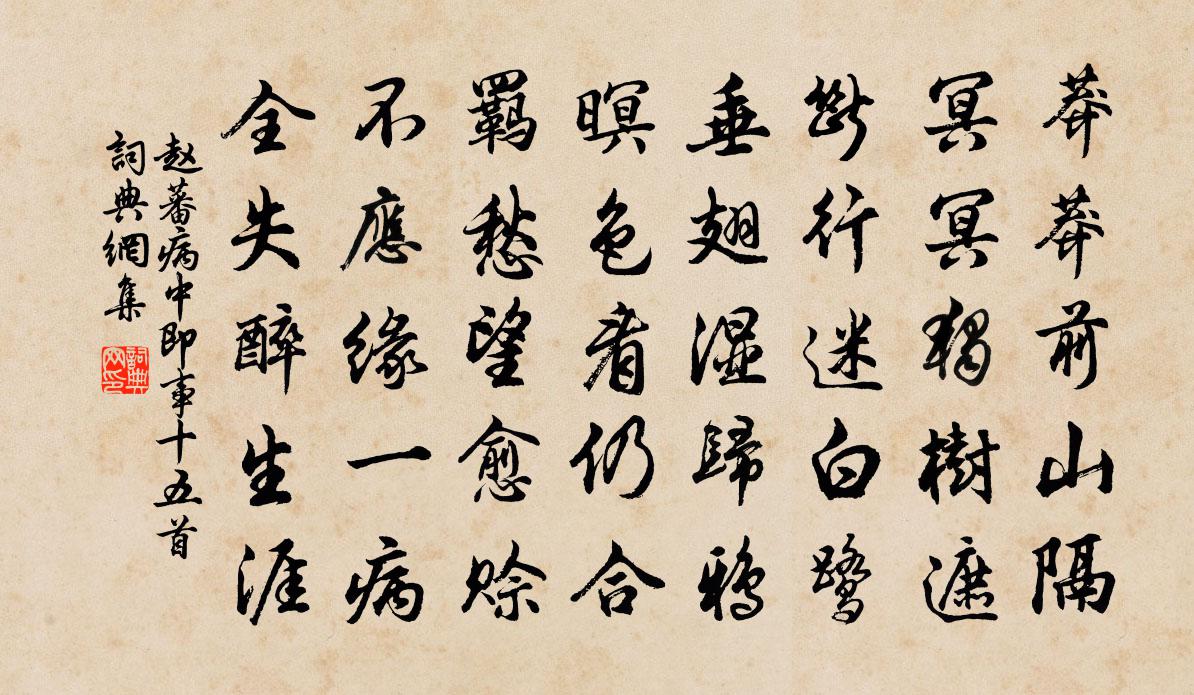 莽莽前山隔
冥冥獨樹遮
斷行迷白鷺
垂翅濕歸鴉
暝色看仍合
羈愁望愈賒
不應緣一病
全失醉生涯
赵蕃病中即事十五首
詞典網集
詞典网印